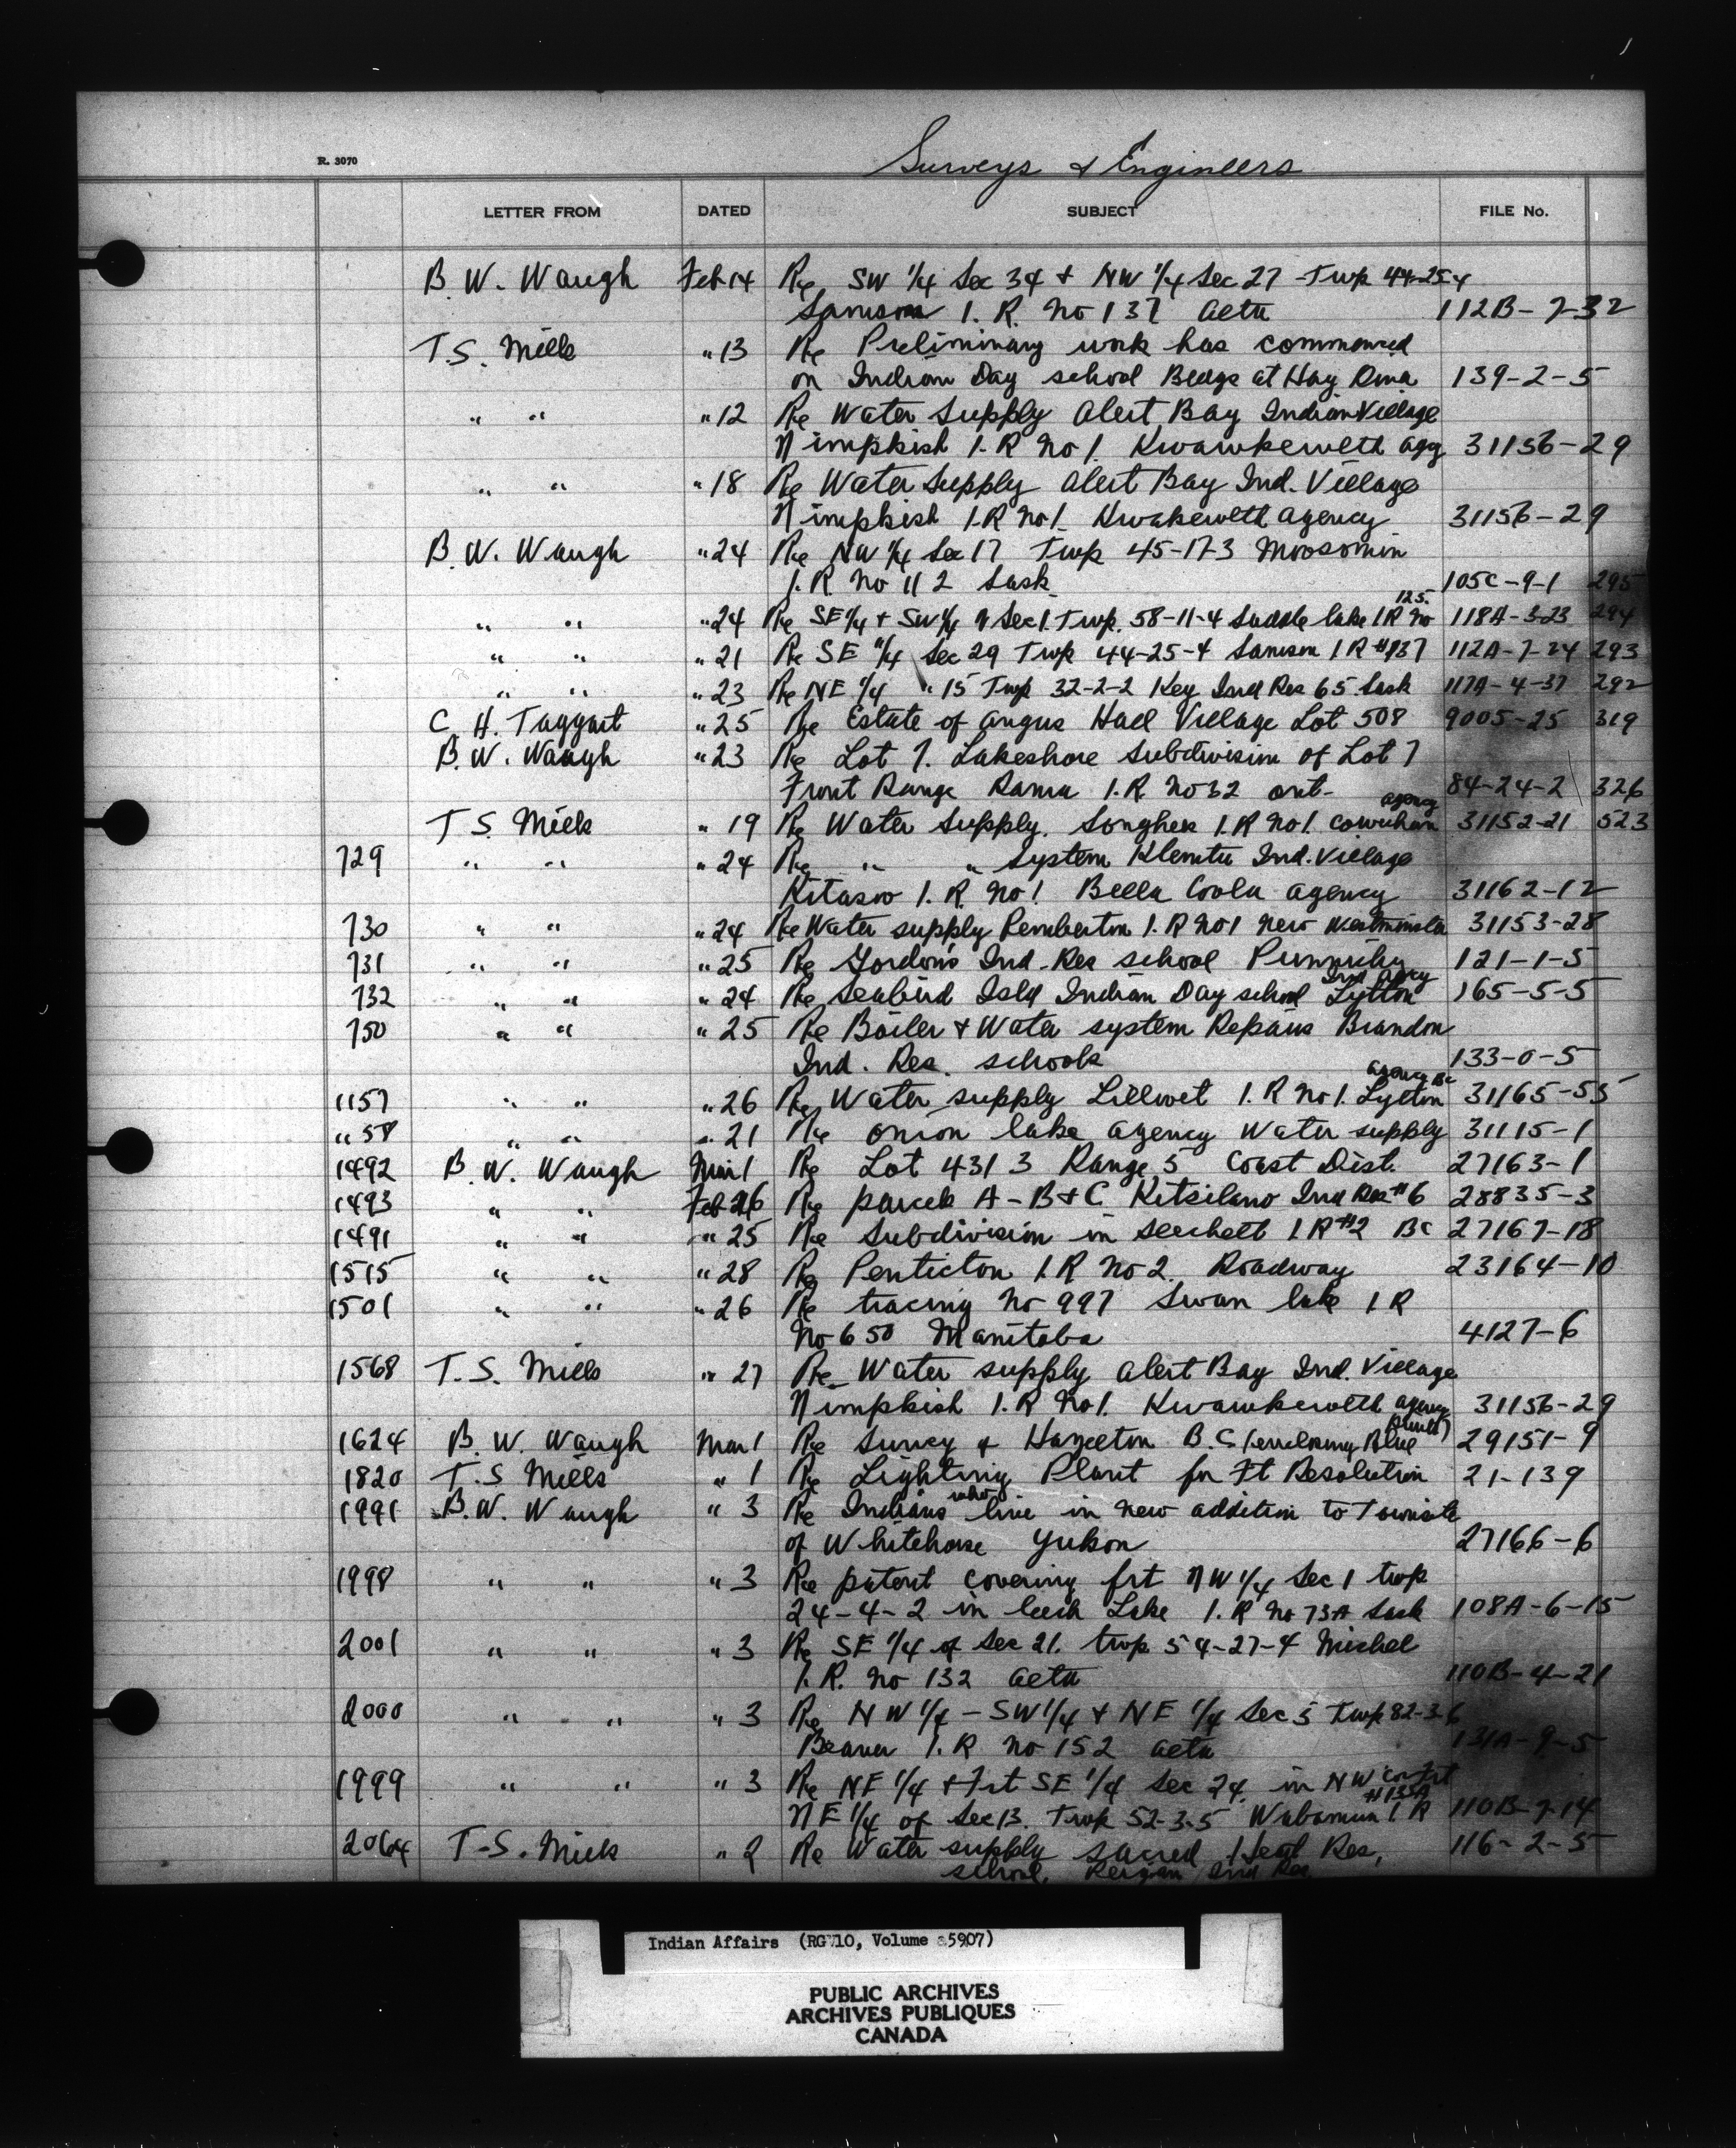 Surveys & Engineers
R. 3070
LETTER FROM DATED SUBJECT FILE No.
B. W. Waugh Feb 14 Re SW 1/4 Sec 34 & NW 1/4 Sec 27 Twp 44-25-4
Samson I. R. No 137 Alta 112B-7-32
T. S. Mills " 13 Re Preliminary work has commenced
on Indian Day school Bldgs at Hay River 139-2-5
" " " 12 Re Water Supply Alert Bay Indian Village
Nimpkish I. R No 1. Kwawkewlth agy 31156-29
" " " 18 Re Water Supply Alert Bay Ind. Village
Nimpkish I. R No 1. Kwakewlth Agency 31156-29
B. W. Waugh " 24 Re NW 1/4 Sec 17 Twp 45-17-3 Moosomin
I. R. No 112 Sask 105C-9-1 295
" " " 24 Re SE 1/4 & SW 1/4 of Sec 1. Twp. 58-11-4 Saddle lake I R No 125. 118A-3-23 294
" " " 21 Re SE 1/4 Sec 29 Twp 44-25-4 Samson I R #137 112A-7-24 293
" " " 23 Re NE 1/4 " 15 Twp 32-2-2 Key Ind Res 65 Sask 117A-4-37 292
C. H. Taggart " 25 Re Estate of Angus Hall Village Lot 508 9005-25 319
B. W. Waugh " 23 Re Lot 7. Lakeshore Subdivision of Lot 7
Front Range Rama I. R. No 32 Ont- 84-24-2 326
T. S. Mills " 19 Re Water Supply. Songhees I. R No 1. Cowichan agency 31152-21 523
729 " " " 24 Re " " System Klemtu Ind. Village
Kitasoo I. R. No 1 Bella Coola Agency 31162-12
730 " " " 24 Re Water supply Pemberton I. R No 1 New Westminster 31153-28
731 " " " 25 Re Gordon's Ind. Res school Punnichy 121-1-5
732 " " " 24 Re Seabird Isld Indian Day school Lytton Ind Agcy 165-5-5
750 " " " 25 Re Boiler & Water system Repairs Brandon
Ind. Res. schools 133-0-5
1157 " " " 26 Re Water supply Lillooet I. R No 1. Lytton agency BC 31165-55
" 58 " " " 21 Re Onion lake agency Water supply 31115-1
1492 B. W. Waugh Mar 1 Re Lot 4313 Range 5 Coast Dist. 27163-1
1493 " " Feb 26 Re parcels A-B & C Kitsilano Ind Res #6 28835-3
1491 " " " 25 Re Subdivision in Seechelt I R #2 BC 27167-18
1515 " " " 28 Re Penticton I. R No 2. Roadway 23164-10
1501 " " " 26 Re tracing No 997 Swan lake I R
No 650 Manitoba 4127-6
1568 T. S. Mills " 27 Re Water supply Alert Bay Ind. Village
Nimpkish I. R No 1. Kwawkewlth agency 31156-29
1624 B. W. Waugh Mar 1 Re Survey & Hazelton B.C. (enclosing Blue prints) 29151-9
1820 T. S Mills " 1 Re Lighting Plant for Ft Resolution 21-139
1991 B. W. Waugh " 3 Re Indians who live in new addition to Townsite
of Whitehorse Yukon 27166-6
1998 " " " 3 Re patent covering frt NW 1/4 Sec 1 twp
24-4-2 in leech Lake I. R No 73A Sask 108A-6-15
2001 " " " 3 Re SE 1/4 of Sec 21. twp 54-27-4 Michel
I. R. No 132 Alta 110B-4-21
2000 " " " 3 Re NW 1/4 - SW 1/4 & NE 1/4 Sec 5 Twp 82-3-6
Beaver I. R No 152 Alta 131A-9-5
1999 " " " 3 Re NE 1/4 & Frt SE 1/4 Sec 24. in NW
NE 1/4 of Sec 13. Twp 52-3-5 Wabamun I R #133A 110B-7-14
2064 T. S. Mills " 2 Re Water supply Sacred Heart Res,
school, Peigan Ind Res 116-2-5
Indian Affairs (RG 10, Volume 5907)
PUBLIC ARCHIVES
ARCHIVES PUBLIQUES
CANADA